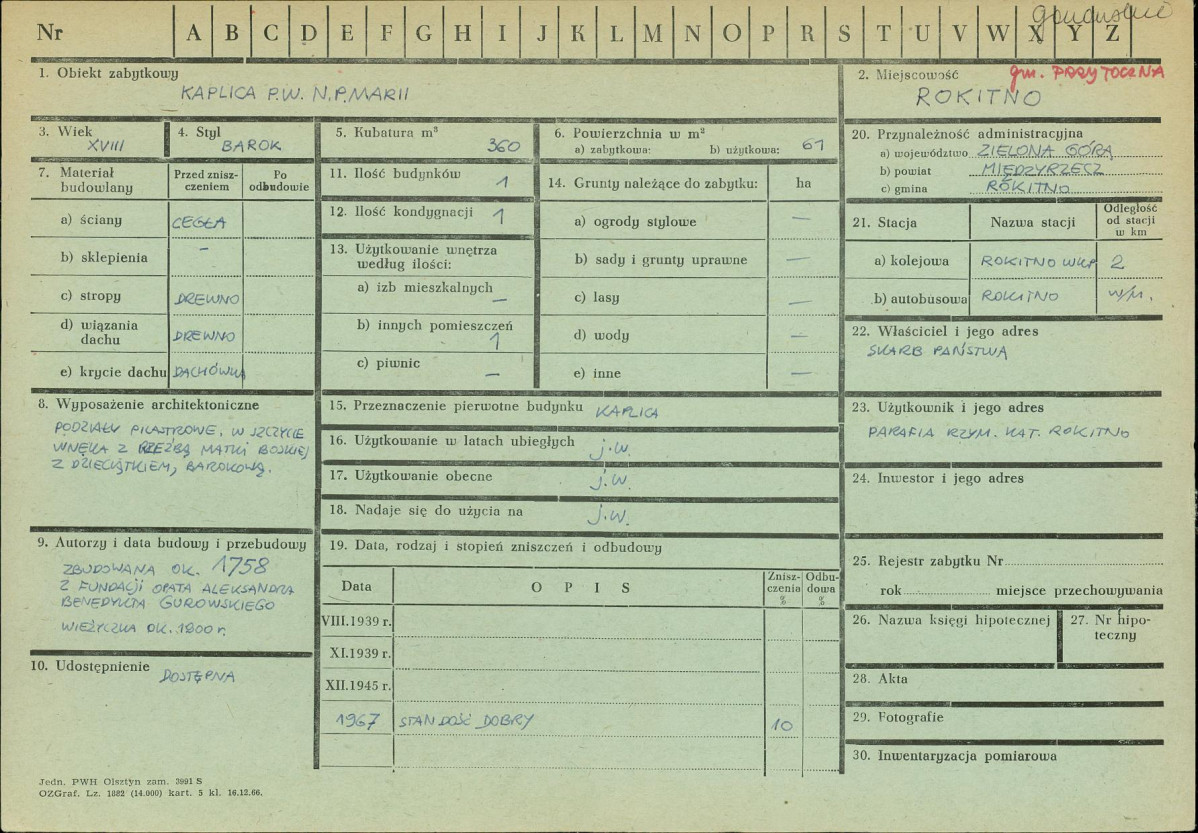 Nr A B C D E F G H I J K L M N O P R S T U V W X Y Z
1. Obiekt zabytkowy
KAPLICA P.W. N.P.MARII
2. Miejscowość gm. PRZYTOCZNA
ROKITNO
3. Wiek
XVIII
4. Styl
BAROK
5. Kubatura m³
360
6. Powierzchnia w m²
a) zabytkowa: b) użytkowa: 61
7. Materiał budowlany
Przed znisz-
czeniem
Po
odbudowie
a) ściany CEGŁA
b) sklepienia –
c) stropy DREWNO
d) wiązania
dachu DREWNO
e) krycie dachu DACHÓWKA
8. Wyposażenie architektoniczne
PODZIAŁY PILASTROWE, W SZCZYCIE
WNĘKA Z RZEŹBĄ MATKI BOSKIEJ
Z DZIECIĄTKIEM, BAROKOWĄ.
9. Autorzy i data budowy i przebudowy
ZBUDOWANA OK. 1758
Z FUNDACJI OPATA ALEKSANDRA
BENEDYKTA GUROWSKIEGO
WIEŻYCZKA OK. 1800 r.
10. Udostępnienie
DOSTĘPNA
11. Ilość budynków 1
12. Ilość kondygnacji 1
13. Użytkowanie wnętrza
według ilości:
a) izb mieszkalnych
–
b) innych pomieszczeń
1
c) piwnic –
14. Grunty należące do zabytku: ha
a) ogrody stylowe –
b) sady i grunty uprawne –
c) lasy –
d) wody –
e) inne –
15. Przeznaczenie pierwotne budynku KAPLICA
16. Użytkowanie w latach ubiegłych j.w.
17. Użytkowanie obecne j.w.
18. Nadaje się do użycia na j.w.
19. Data, rodzaj i stopień zniszczeń i odbudowy
Data O P I S Znisz-
czenia
%
Odbu-
dowa
%
VIII.1939 r.
XI.1939 r.
XII.1945 r.
1967 STAN DOŚĆ DOBRY 10
20. Przynależność administracyjna
a) województwo ZIELONA GÓRA
b) powiat MIĘDZYRZECZ
c) gmina ROKITNO
21. Stacja Nazwa stacji Odległość
od stacji
w km
a) kolejowa ROKITNO WLKP 2
b) autobusowa ROKITNO w/m.
22. Właściciel i jego adres
SKARB PAŃSTWA
23. Użytkownik i jego adres
PARAFIA RZYM. KAT. ROKITNO
24. Inwestor i jego adres
25. Rejestr zabytku Nr
rok miejsce przechowywania
26. Nazwa księgi hipotecznej
27. Nr hipo-
teczny
28. Akta
29. Fotografie
30. Inwentaryzacja pomiarowa
Jedn. PWH Olsztyn zam. 3991 S
OZGraf. Lz. 1882 (14.000) kart. 5 kl. 16.12.66.